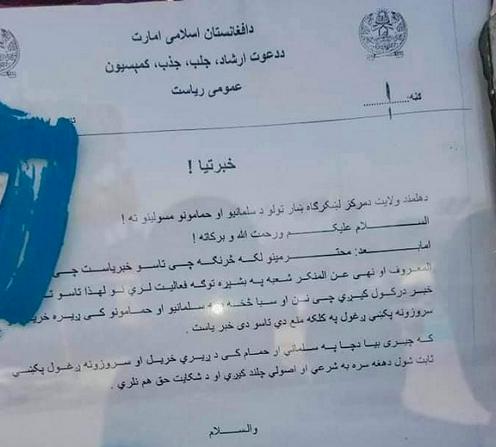 دافغانستان اسلامی امارت
ددعوت ارشاد، جلب، جذب، کمېسیون
عمومی ریاست
ګڼه: ١
١
خبرتیا !
دهلمند ولایت دمرکز لښکرګاه ښار ټولو د سلمانیو او حمامونو مسولینو ته !
الســـلام علیکـــم ورحمت الله و برکاته !
امابعد: محتــرمینو لکه څرنګه چی تاسو خبریاست چی
المعروف او نهی عن المنکر شعبه په بشپړه توګه فعالیت لری نو لهذا تاسو ته
خبر درکول کیږي چی نن او سبا څخه په سلمانیو او حمامونو کی ږیره خریل
سروزونه پکښی ږغول په کلکه منع دي تاسو دی خبر یاست .
که چیری بیا دچا په سلمانی او حمام کی د ږیري خریل او سروزونه ږغول پکښي
ثابت شول دهغه سره به شرعی او اصولي چلند کیږي او د شکایت حق هم نلري .
والســـلام